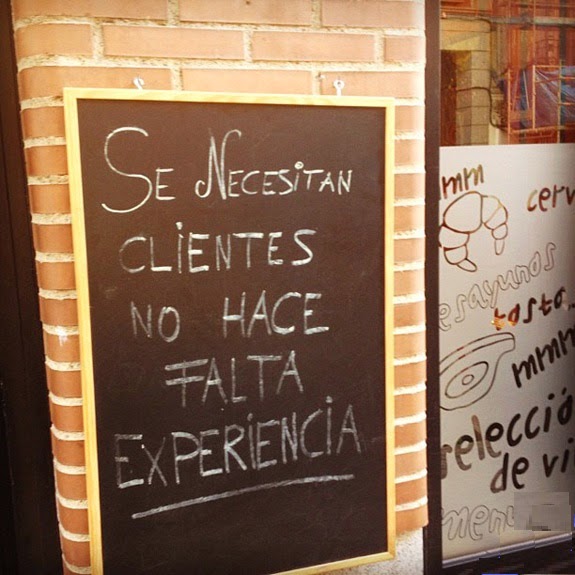 SE NECESITAN
CLIENTES
NO HACE
FALTA
EXPERIENCIA
mmm
cerv
esayunos
tosta
mmm
selección
de vi
menu